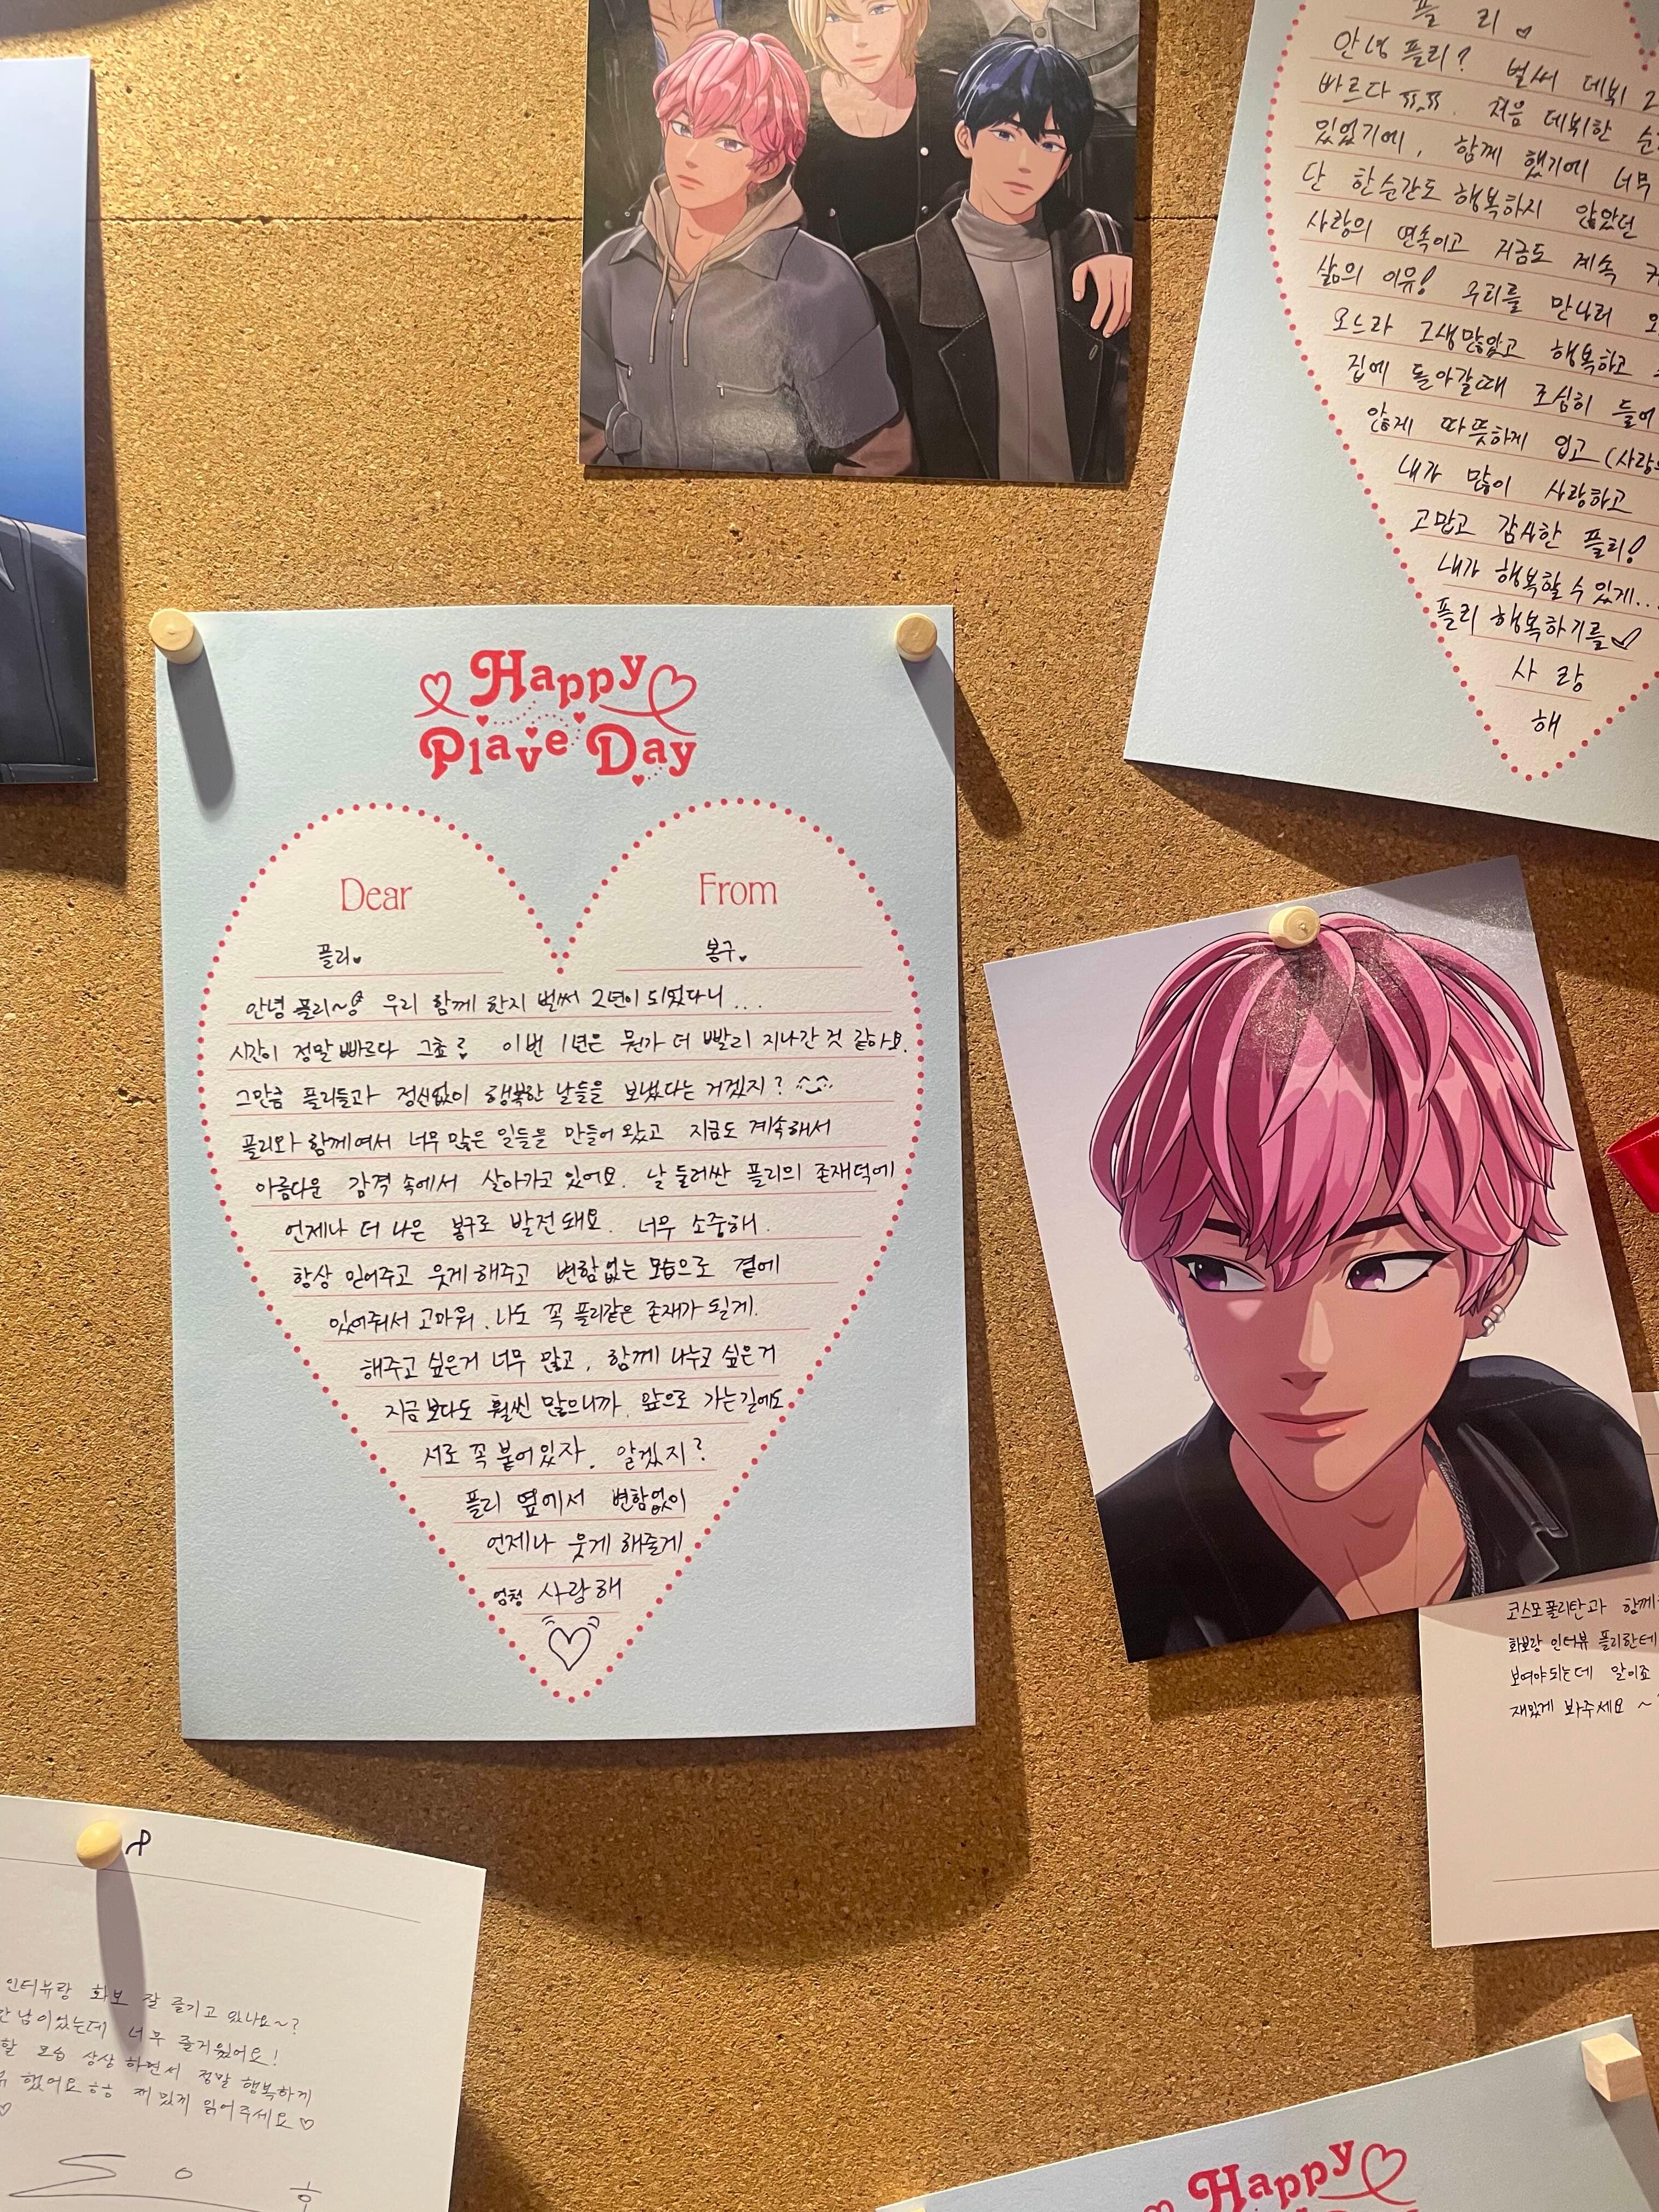 플 리
안녕 플리? 벌써 데뷔 2
빠르다 ㅠㅠ. 처음 데뷔한 순
있었기에, 함께 했기에 너무
단 한순간도 행복하지 않았던
사랑의 연속이고 지금도 계속 커
삶의 이유! 우리를 만나러 오
오느라 고생많았고 행복하고
집에 돌아갈때 조심히 들어
않게 따뜻하게 입고 (사랑
내가 많이 사랑하고
고맙고 감사한 플리!
내가 행복할 수 있게...
플리 행복하기를♡
사 랑
해
Happy
Plave Day
Dear From
플리♥ 봉구♥
안녕 플리~ 우리 함께 한지 벌써 2년이 되었다니...
시간이 정말 빠르다 그쵸? 이번 1년은 뭔가 더 빨리 지나간 것 같아요.
그만큼 플리들과 정신없이 행복한 날들을 보냈다는 거겠지?
플리와 함께여서 너무 많은 일들을 만들어 왔고 지금도 계속해서
아름다운 감격 속에서 살아가고 있어요. 날 둘러싼 플리의 존재덕에
언제나 더 나은 봉구로 발전돼요. 너무 소중해.
항상 믿어주고 웃게 해주고 변함없는 모습으로 곁에
있어줘서 고마워. 나도 꼭 플리같은 존재가 될게.
해주고 싶은거 너무 많고, 함께 나누고 싶은거
지금보다도 훨씬 많으니까. 앞으로 가는길에도
서로 꼭 붙어있자. 알겠지?
플리 옆에서 변함없이
언제나 웃게 해줄게
엄청 사랑해
코스모폴리탄과 함께
화보랑 인터뷰 플리한테
보여야되는데 말이죠
재밌게 봐주세요 ~
인터뷰랑 화보 잘 즐기고 있나요~?
만남이었는데 너무 즐거웠어요!
할 모습 상상 하면서 정말 행복하게
했어요 ㅎㅎ 재밌게 읽어주세요♡
Happy